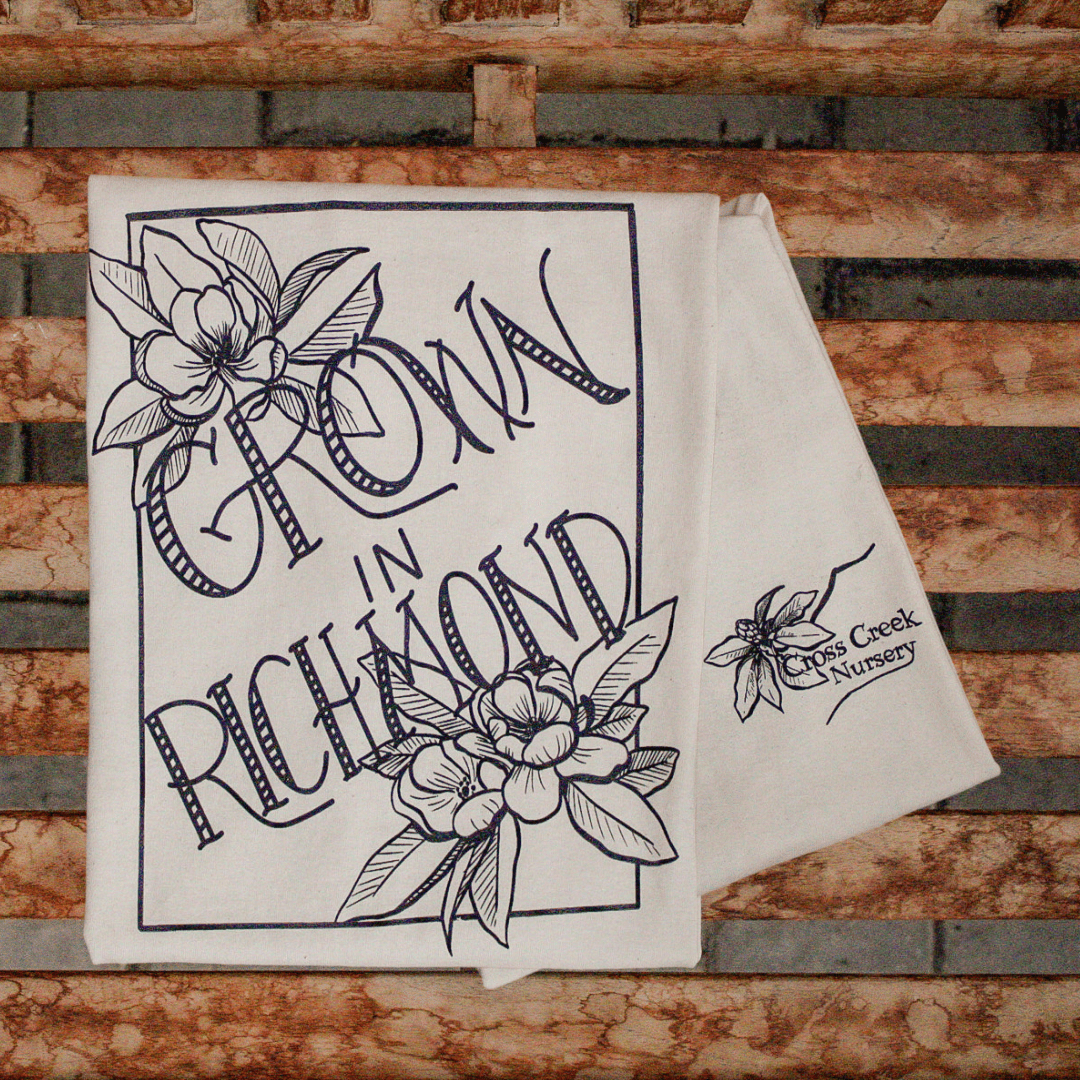 GROWN
IN
RICHMOND
Cross Creek
Nursery